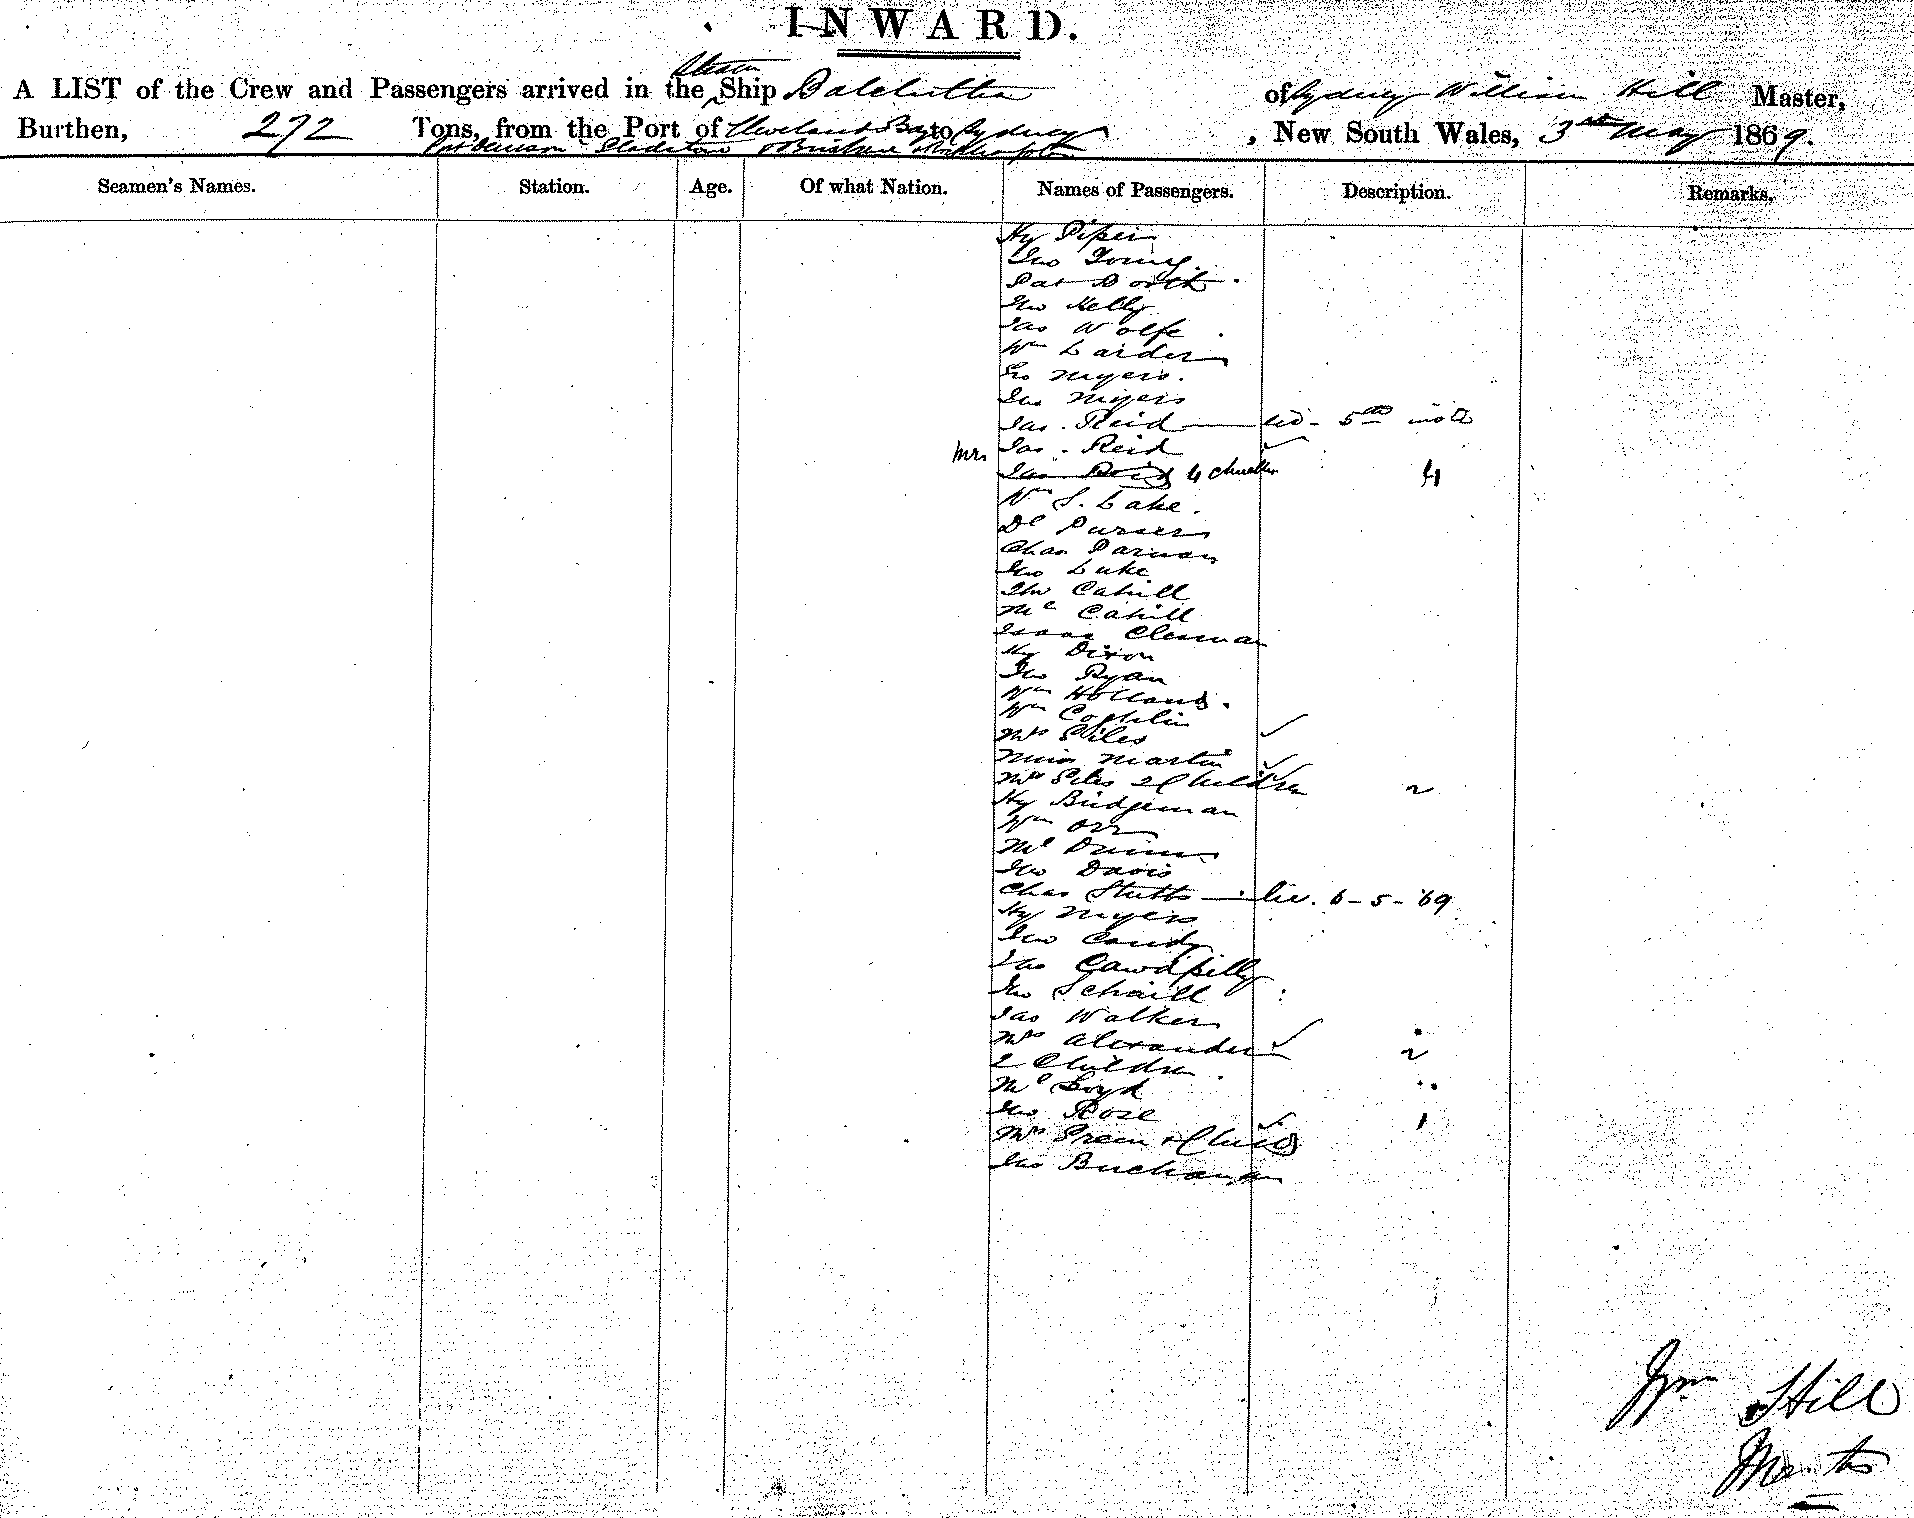 INWARD.
Steam
A LIST of the Crew and Passengers arrived in the Ship Balclutha of Sydney William Hill Master,
Burthen, 272 Tons, from the Port of Cleveland Bay to Sydney, New South Wales, 3rd May 1869.
Port Denison Gladstone & Brisbane Rockhampton
Seamen's Names. Station. Age. Of what Nation. Names of Passengers. Description. Remarks.
Hy Piper
Jno
Pat
Jno Kelly
Jas Wolfe
Wm Larder
Geo Myers.
Jno Myers
Jas. Reid 5th inst
Mrs Jas. Reid
4 4
Wm S. Lake.
Dl Purser
Chas
Jno Luke
Cahill
Mc Cahill
Isaac
Hy Dixon
Jno Ryan
Wm Holland.
Wm Coghlin
Mrs Giles
Miss Martin
Mrs Giles 2 Children 2
Hy Bridgeman
Wm Orr
Ml
Jno Davis
Chas Stutts 6-5-69
Hy Myers
Jno Candy
Jas
Jno
Jas Walker
Mrs Alexander
2 Children. 2
Ml Boyd
Jno Rose
Mrs Green & Child 1
Jno Buchanan
Wm Hill
Master